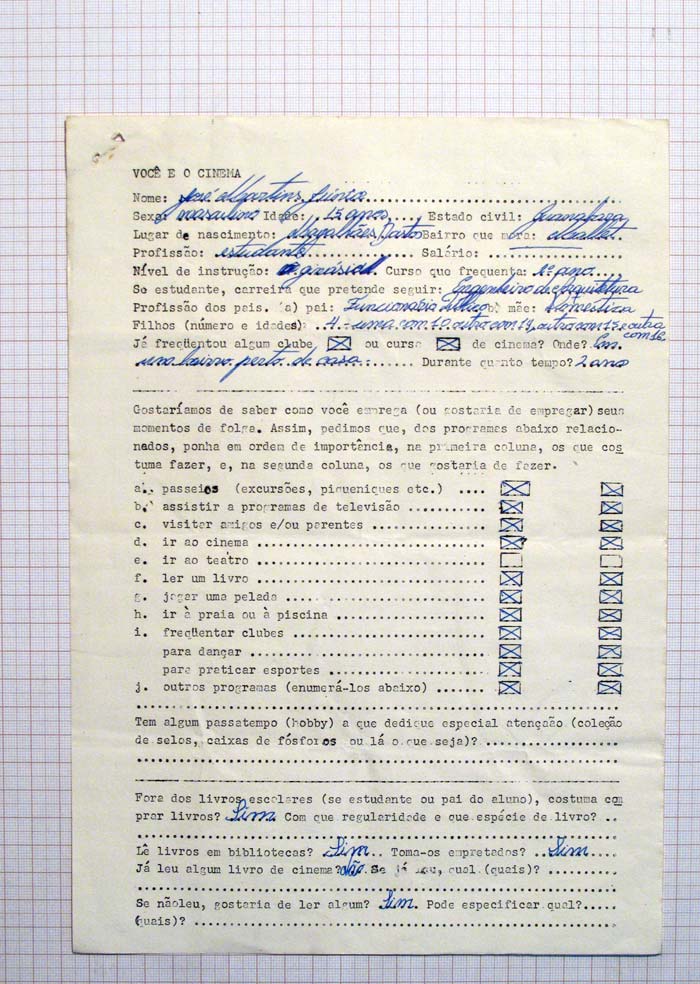 VOCÊ E O CINEMA
Nome: José Martins Júnior
Sexo: masculino Idade: 15 anos Estado civil: Guanabara
Lugar de nascimento: Magalhães Basto Bairro que mora: Mallet
Profissão: estudante Salário:
Nível de instrução: ginásial. Curso que frequenta: 1º ano
Se estudante, carreira que pretende seguir: Engenheiro de
Profissão dos pais. (a) pai: Funcionario b) mãe: Domestica
Filhos (número e idades): 4 - uma com 10 outro com 19, outro com 15 e outra com 16
Já freqüentou algum clube ou curso de cinema? Onde? Em.
um bairro perto de casa Durante quanto tempo? 2 ano
Gostaríamos de saber como você emprega (ou gostaria de empregar) seus
momentos de folga. Assim, pedimos que, dos programas abaixo relacio-
nados, ponha em ordem de importância, na primeira coluna, os que cos
tuma fazer, e, na segunda coluna, os que gostaria de fazer.
a. passeios (excursões, piqueniques etc.)
b. assistir a programas de televisão
c. visitar amigos e/ou parentes
d. ir ao cinema ?
e. ir ao teatro
f. ler um livro
g. jogar uma pelada
h. ir à praia ou à piscina
i. freqüentar clubes
para dançar
para praticar esportes
j. outros programas (enumerá-los abaixo)
Tem algum passatempo (hobby) a que dedique especial atençaão (coleção
de selos, caixas de fósforos ou lá o que seja)?
Fora dos livros escolares (se estudante ou pai do aluno), costuma com
prar livros? Sim. Com que regularidade e que espécie de livro?
Lê livros em bibliotecas? Sim Toma-os empretados? Sim
Já leu algum livro de cinema? não. Se já leu, qual (quais)?
Se nãoleu, gostaria de ler algum? Sim. Pode especificar qual?
(quais)?